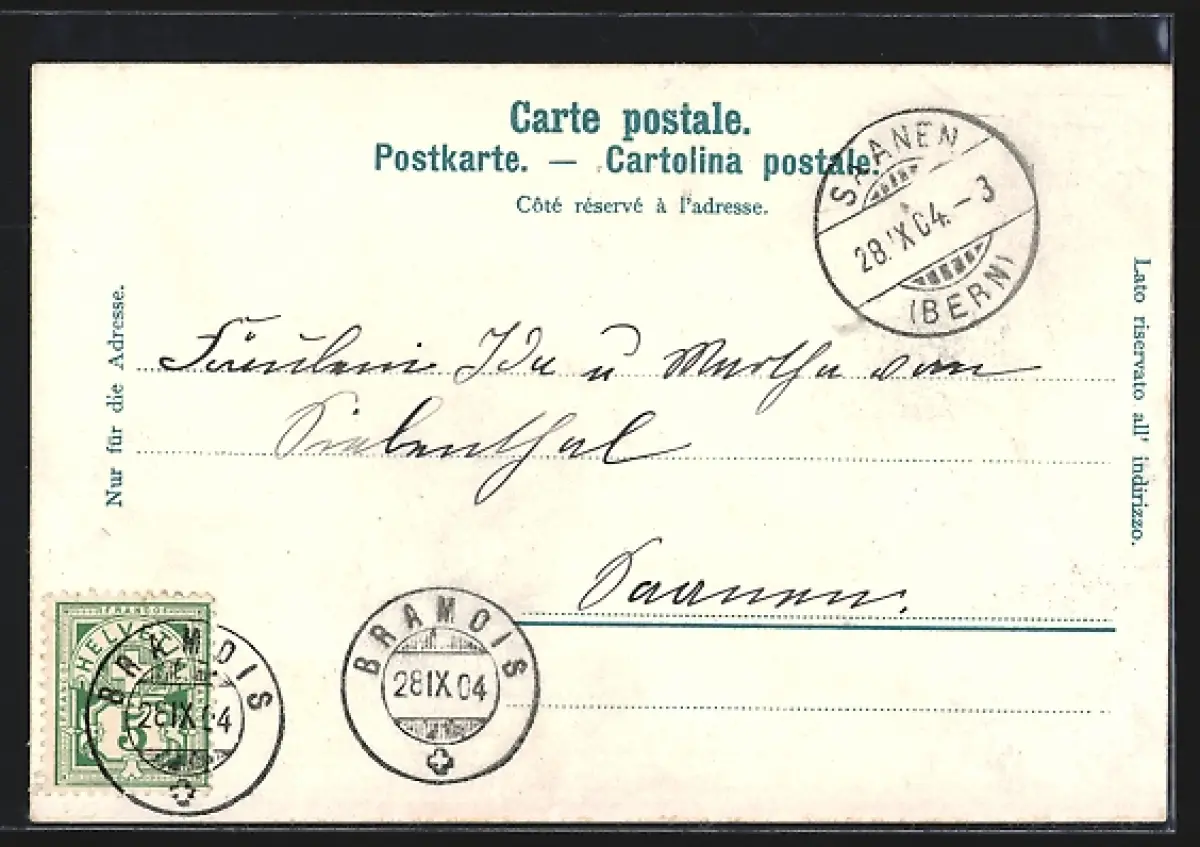 Carte postale.
Postkarte. — Cartolina postale.
Côté réservé à l'adresse.
SAANEN
28.IX.04.-3
(BERN)
Nur für die Adresse.
Lato riservato all' indirizzo.
Fräulein Ida u Martha von
Saanen.
FRANCO
HELVETIA
FRANCO
5
BRAMOIS
28IX04
BRAMOIS
28IX04